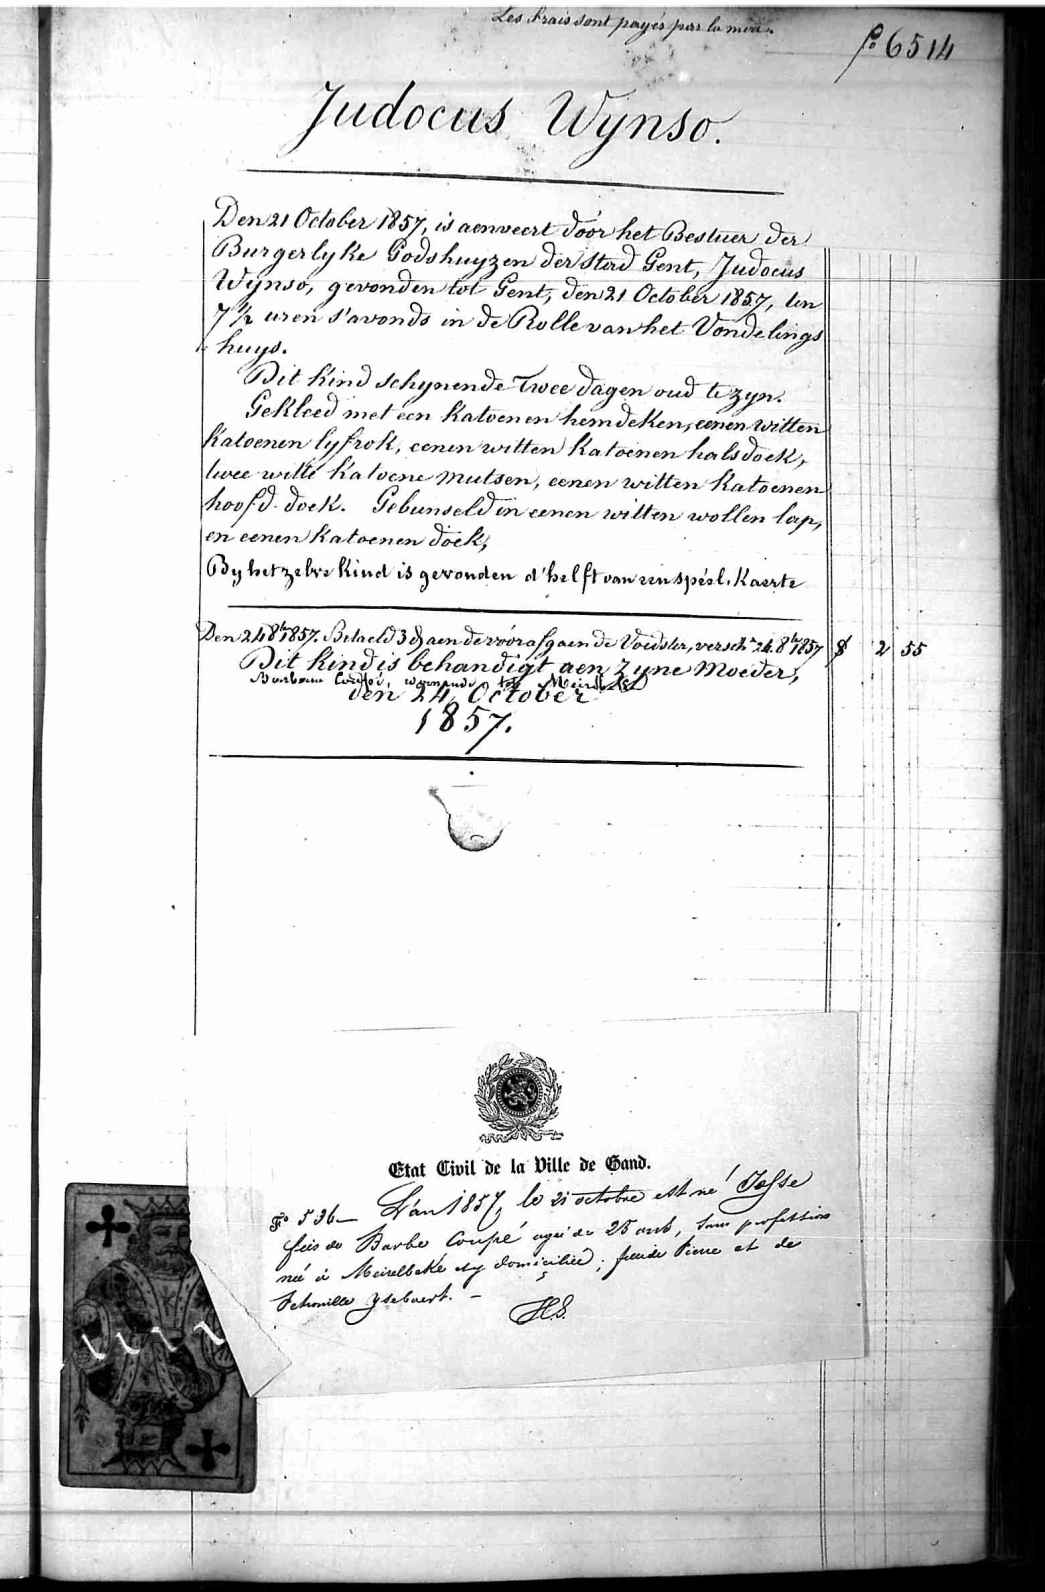 Les frais sont payés par la mère.
fo 6514
Judocus Wynso.
Den 21 October 1857, is aenveert door het Bestuer der
Burgerlyke Godshuyzen der stad Gent, Judocus
Wynso, gevonden tot Gent, den 21 October 1857, ten
7 ½ uren s'avonds in de Rolle van het Vondelings
huys.
Dit kind schynende Twee dagen oud te zyn.
Gekleed met een Katoenen hemdeken, eenen witten
Katoenen lyfrok, eenen witten Katoenen halsdoek,
twee witte Katoene mutsen, eenen witten Katoenen
hoofd-doek. Gebunseld in eenen witten wollen lap,
en eenen Katoenen doek,
By het zelve kind is gevonden d'helft van een spéel-Kaerte
Den 24 8bre 1857. Betaeld 3 d aen de voorafgaende Voedster, versch. 24 8bre 1857 2 55
Dit kind is behandigt aen zyne Moeder,
Barbara Coupé, woonende tot Meirelbeke
den 24 October
1857.
Etat Civil de la Ville de Gand.
Fo 536 — L'an 1857, le 21 octobre est né Josse
fils de Barbe Coupé agée de 25 ans, sans profession
née à Meirelbeke et y domiciliée, fille de Pierre et de
Petronille Ysebaert. —